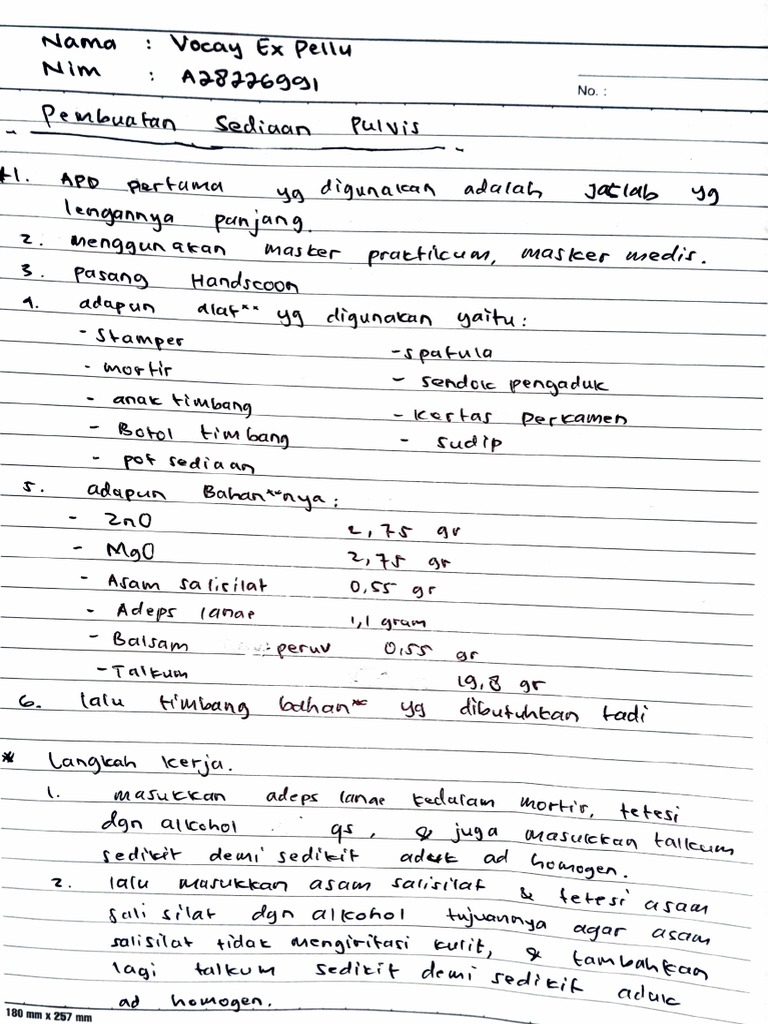 Nama : Vocay Ex Pellu
Nim : A28226991
No. :
Pembuatan Sediaan Pulvis
*1. APD pertama yg digunakan adalah jaslab yg
lengannya panjang.
2. menggunakan masker praktikum, masker medis.
3. pasang Handscoon
4. adapun alat** yg digunakan yaitu :
- Stamper - spatula
- mortir - sendok pengaduk
- anak timbang - kertas perkamen
- Botol timbang - sudip
- pot sediaan
5. adapun Bahan**nya :
- ZnO 2,75 gr
- MgO 2,75 gr
- Asam salisilat 0,55 gr
- Adeps lanae 1,1 gram
- Balsam peruv 0,55 gr
- Talkum 19,8 gr
6. lalu timbang bahan** yg dibutuhkan tadi
* Langkah kerja.
1. masukkan adeps lanae kedalam mortir, tetesi
dgn alkohol qs, & juga masukkan talkum
sedikit demi sedikit aduk ad homogen.
2. lalu masukkan asam salisilat & tetesi asam
salisilat dgn alkohol tujuannya agar asam
salisilat tidak mengiritasi kulit, & tambahkan
lagi talkum sedikit demi sedikit aduk
ad homogen.
180 mm x 257 mm